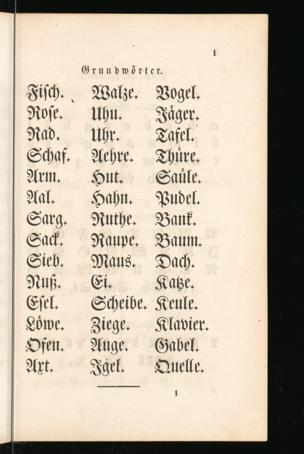 1
Grundwörter.
Fisch. Walze. Vogel.
Rose. Uhu. Jäger.
Rad. Uhr. Tafel.
Schaf. Aehre. Thüre.
Arm. Hut. Saüle.
Aal. Hahn. Pudel.
Sarg. Ruthe. Bank.
Sack. Raupe. Baum.
Sieb. Maus. Dach.
Nuß. Ei. Katze.
Esel. Scheibe. Keule.
Löwe. Ziege. Klavier.
Ofen. Auge. Gabel.
Axt. Igel. Quelle.
1